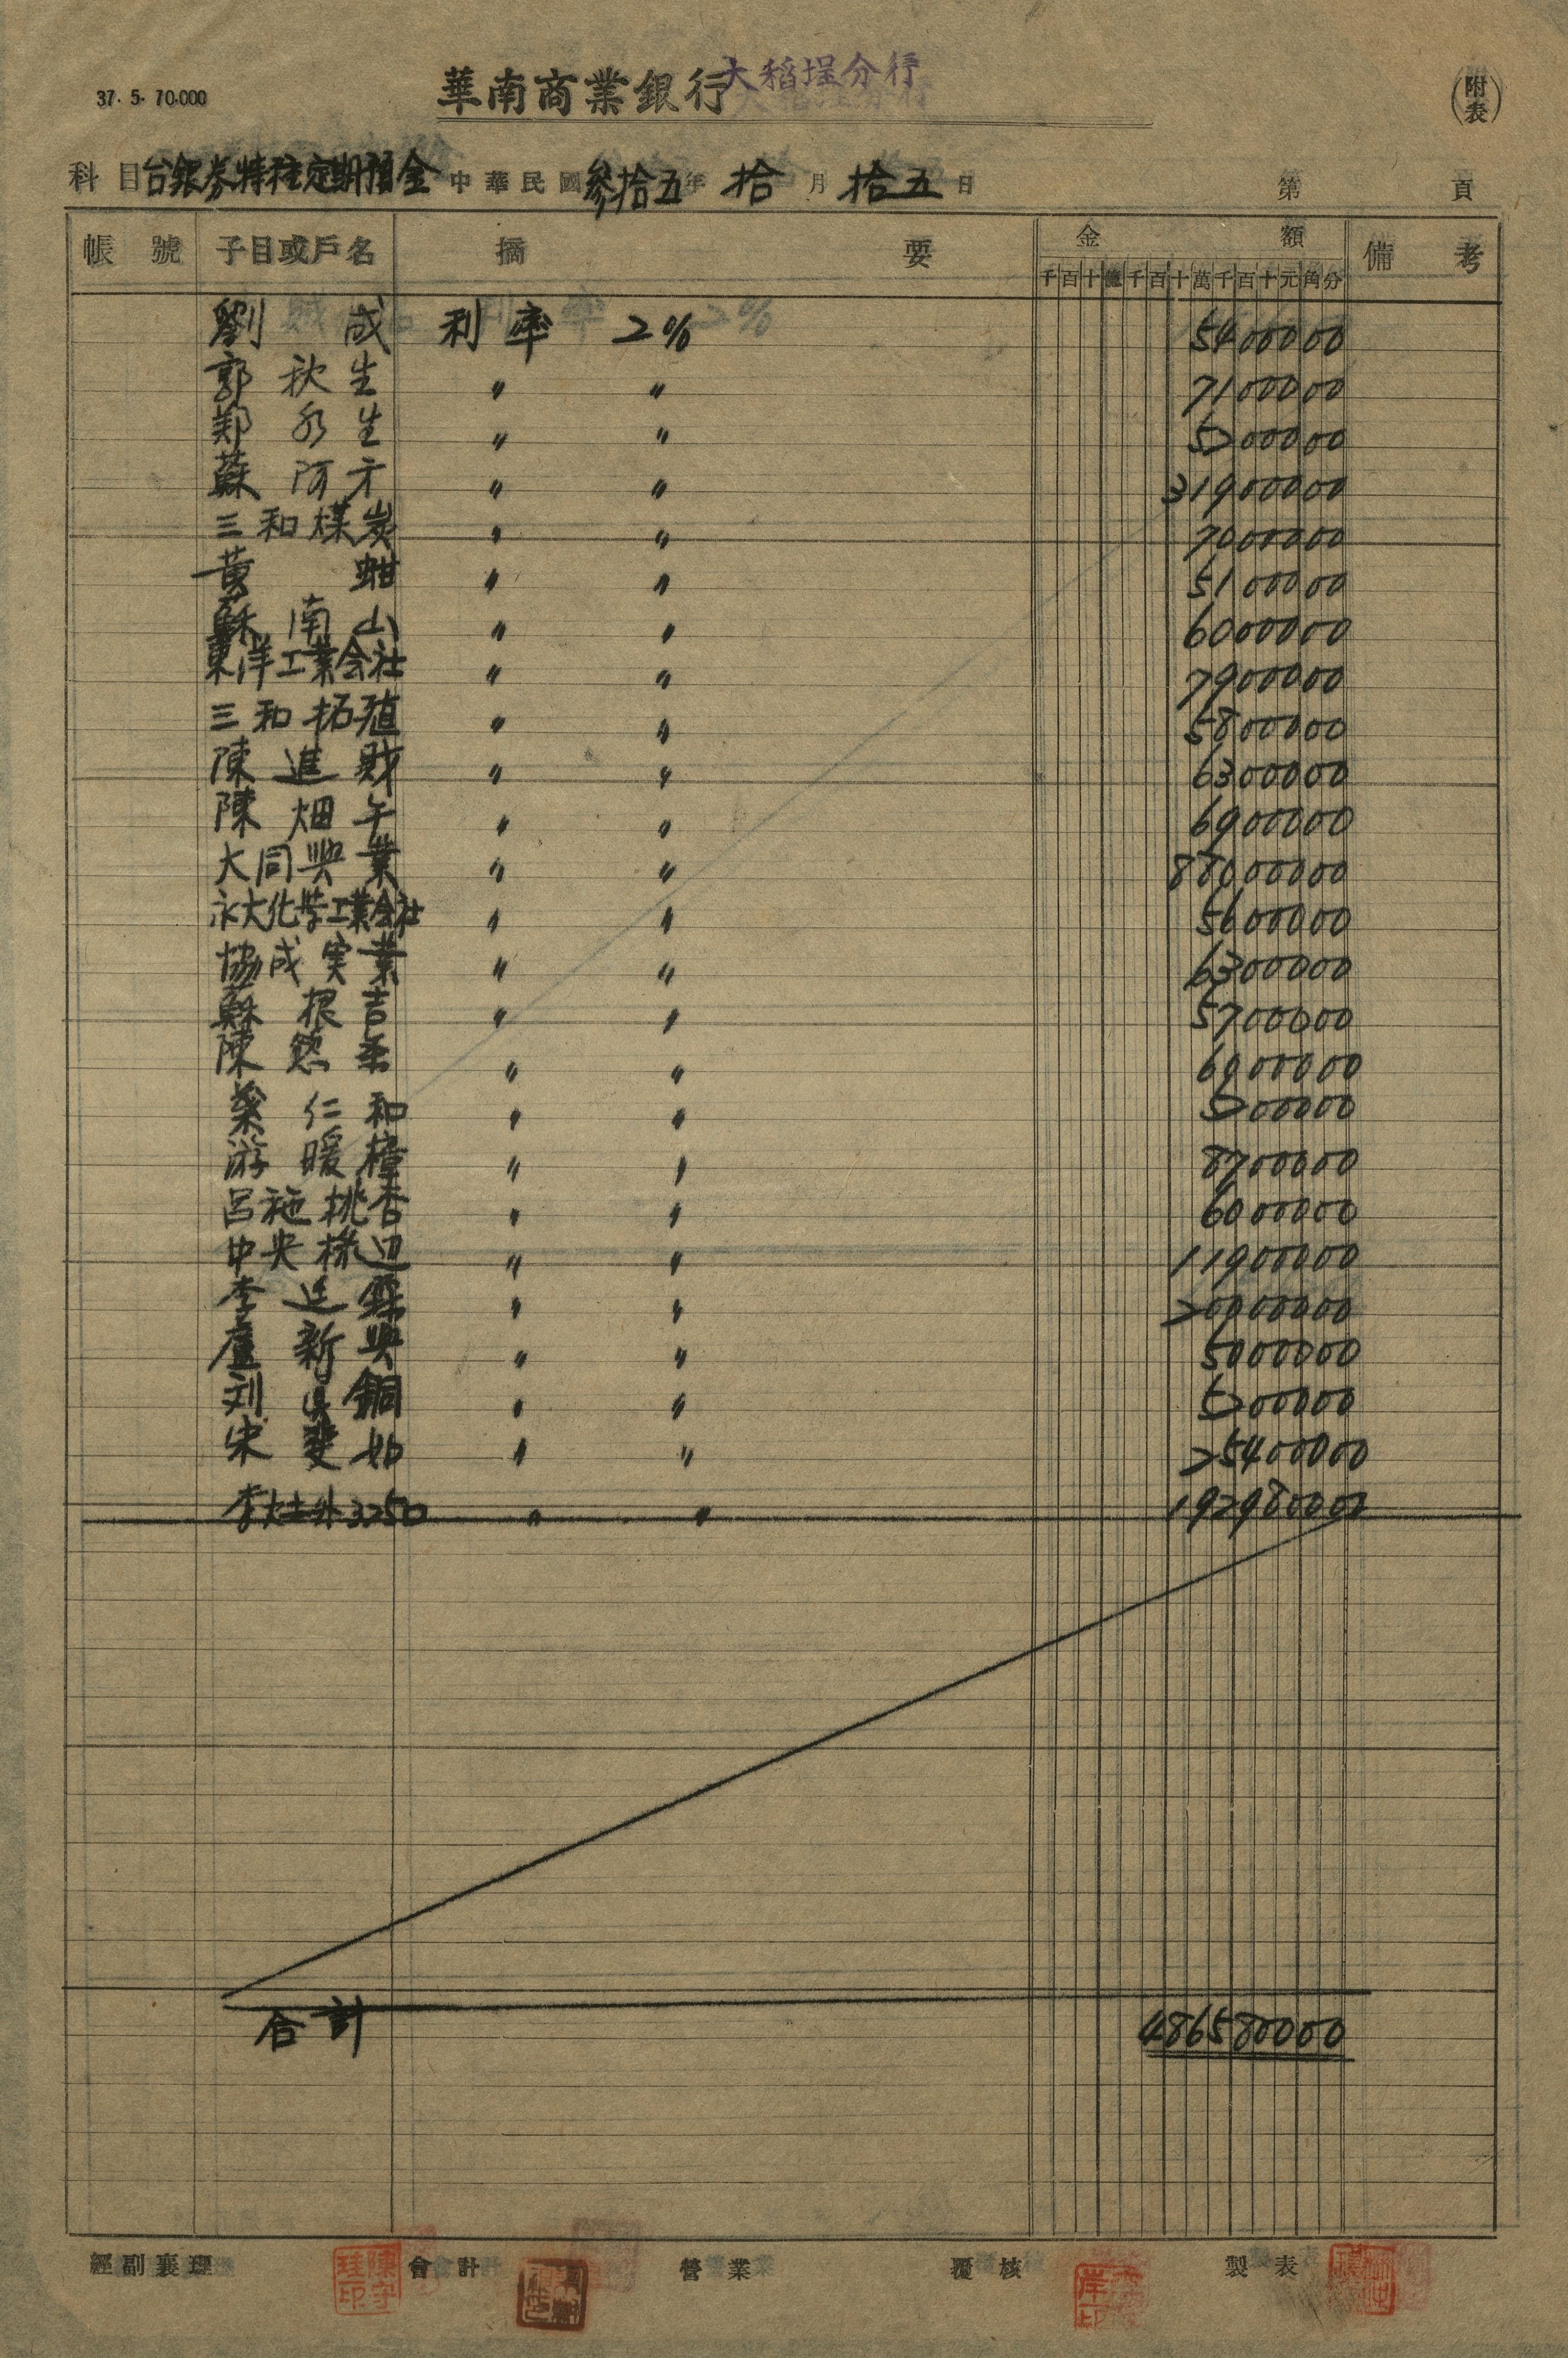 37. 5. 70.000
華南商業銀行大稻埕分行
(附表)
科目台銀券特種定期預金 中華民國參拾五年 拾月 拾五日 第 頁
帳號 子目或戶名 摘要 金額 備考
千百十億千百十萬千百十元角分
劉 成 利率 2% 5400000
郭秋生 〃 〃 7100000
鄭水生 〃 〃 5200000
蘇阿才 〃 〃 31900000
三和煤炭 〃 〃 7000000
黃 蚶 〃 〃 5100000
蘇南山 〃 〃 6000000
東洋工業会社 〃 〃 7900000
三和拓殖 〃 〃 5800000
陳進財 〃 〃 6300000
陳畑午 〃 〃 6900000
大同興業 〃 〃 88000000
永大化学工業会社 〃 〃 5600000
協成実業 〃 〃 6300000
蘇根吉 〃 〃 5700000
陳 〃 〃 6000000
葉仁和 〃 〃 5200000
游暖樟 〃 〃 8700000
呂施桃杏 〃 〃 6000000
中央 〃 〃 11900000
李廷霖 〃 〃 20000000
盧新興 〃 〃 5000000
刘吳銅 〃 〃 5200000
宋斐如 〃 〃 25400000
李火土外3250 〃 〃 192980000
合計 486580000
經副襄理 會計 營業 覆核 製表